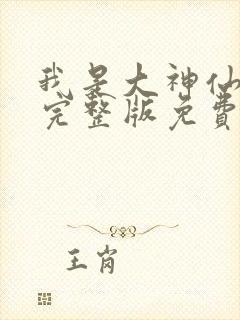 我是大神仙
完整版免费
王肖